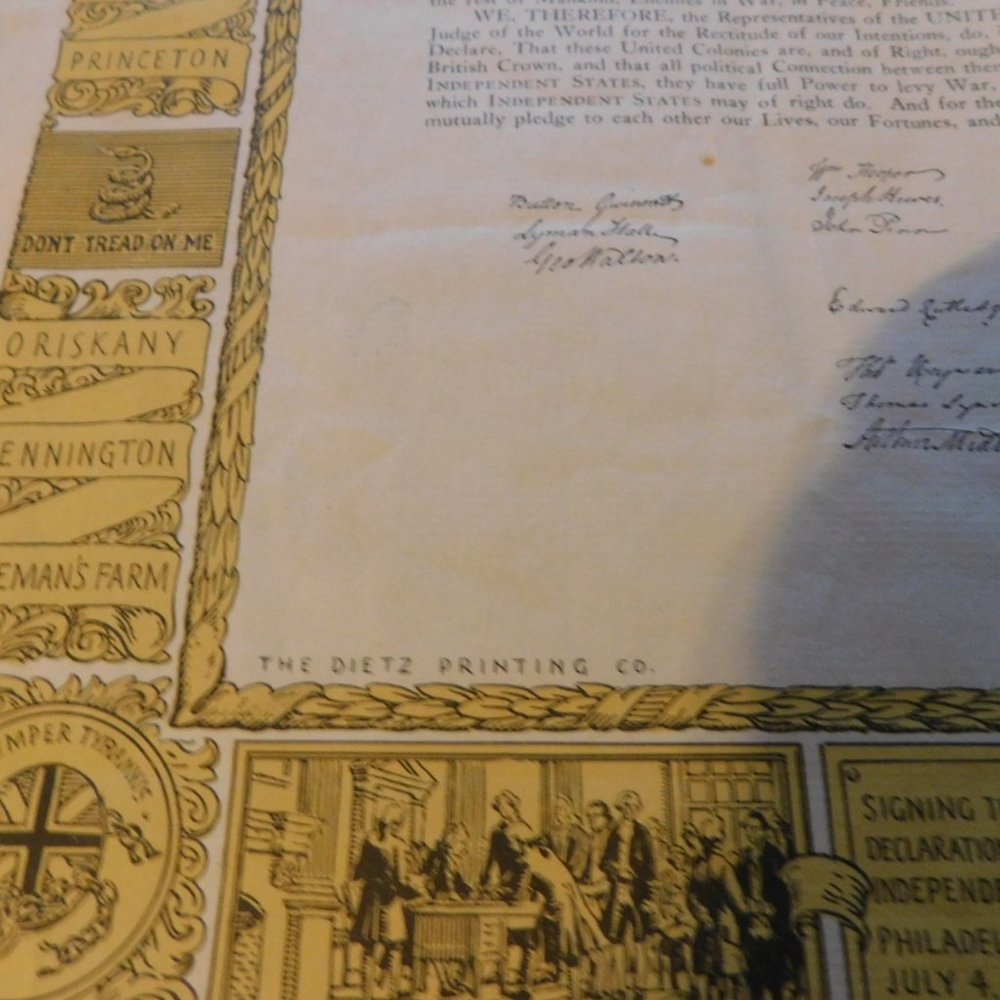 the rest of Mankind, Enemies in War, in Peace, Friends.
WE, THEREFORE, the Representatives of the UNITE
Judge of the World for the Rectitude of our Intentions, do,
Declare, That these United Colonies are, and of Right, ough
British Crown, and that all political Connection between the
INDEPENDENT STATES, they have full Power to levy War,
which INDEPENDENT STATES may of right do. And for the
mutually pledge to each other our Lives, our Fortunes, and
PRINCETON
DONT TREAD ON ME
ORISKANY
ENNINGTON
EMAN'S FARM
Button Gwinnett
Lyman Hall
Geo Walton
Wm Hooper
Joseph Hewes,
John Penn
Edward Rutledg
Thos Heywar
Thomas Lyn
Arthur Midd
THE DIETZ PRINTING CO.
MPER TYRANNIS
SIGNING T
DECLARATIO
INDEPENDE
PHILADEL
JULY 4,